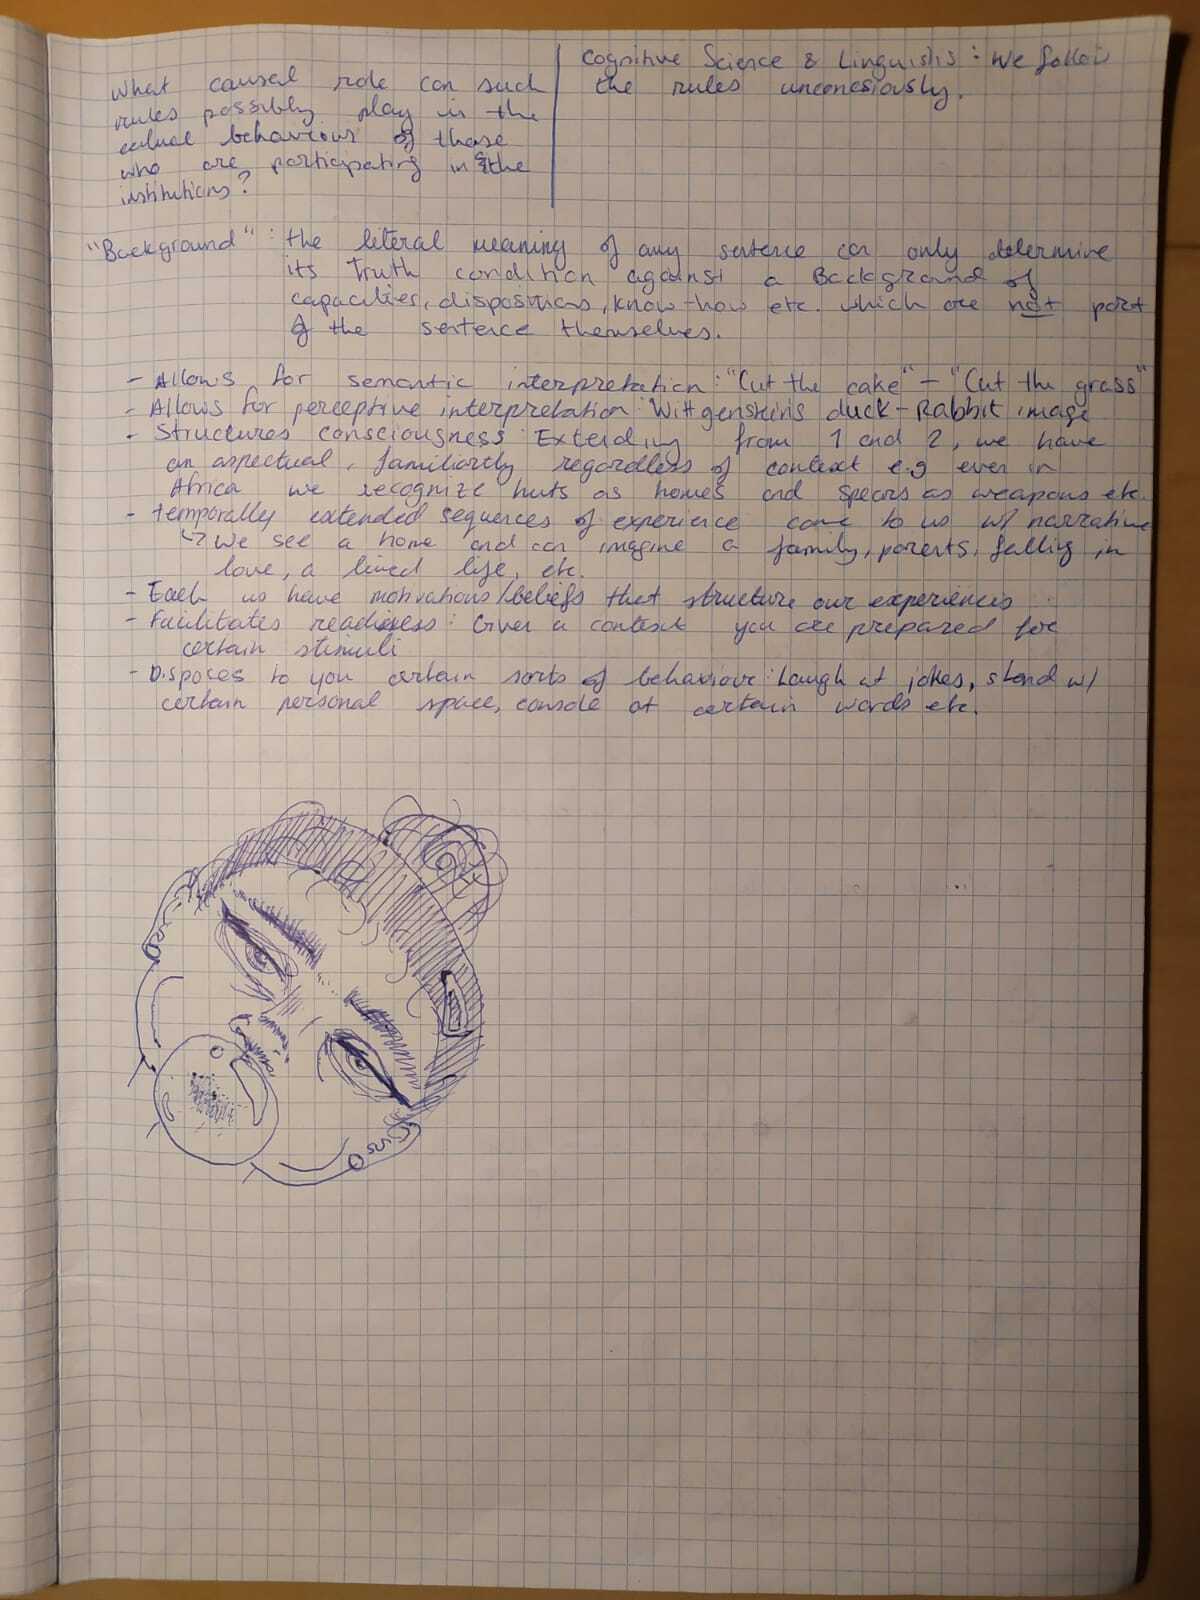 What causal role can such
rules possibly play in the
actual behaviour of those
who are participating in the
institutions?
Cognitive Science & Linguistis: We follow
the rules unconsciously.
"Background": the literal meaning of any sentence can only determine
its Truth condition against a Background of
capacities, dispositions, know-how etc. which are not part
of the sentence themselves.
- Allows for semantic interpretation: "Cut the cake" - "Cut the grass"
- Allows for perceptive interpretation: Wittgenstein's duck-Rabbit image
- Structures consciousness: Extending from 1 and 2, we have
an aspectual, familiartly regardless of context e.g even in
Africa we recognize huts as homes and spears as weapons etc.
- Temporally extended sequences of experience come to us w/ narrative
↳ We see a home and can imagine a family, parents, falling in
love, a lived life, etc.
- Each us have motivations/beliefs that structure our experiences
- Facilitates readiness: Given a context you are prepared for
certain stimuli
- Disposes to you certain sorts of behaviour: Laugh at jokes, stand w/
certain personal space, console at certain words etc.